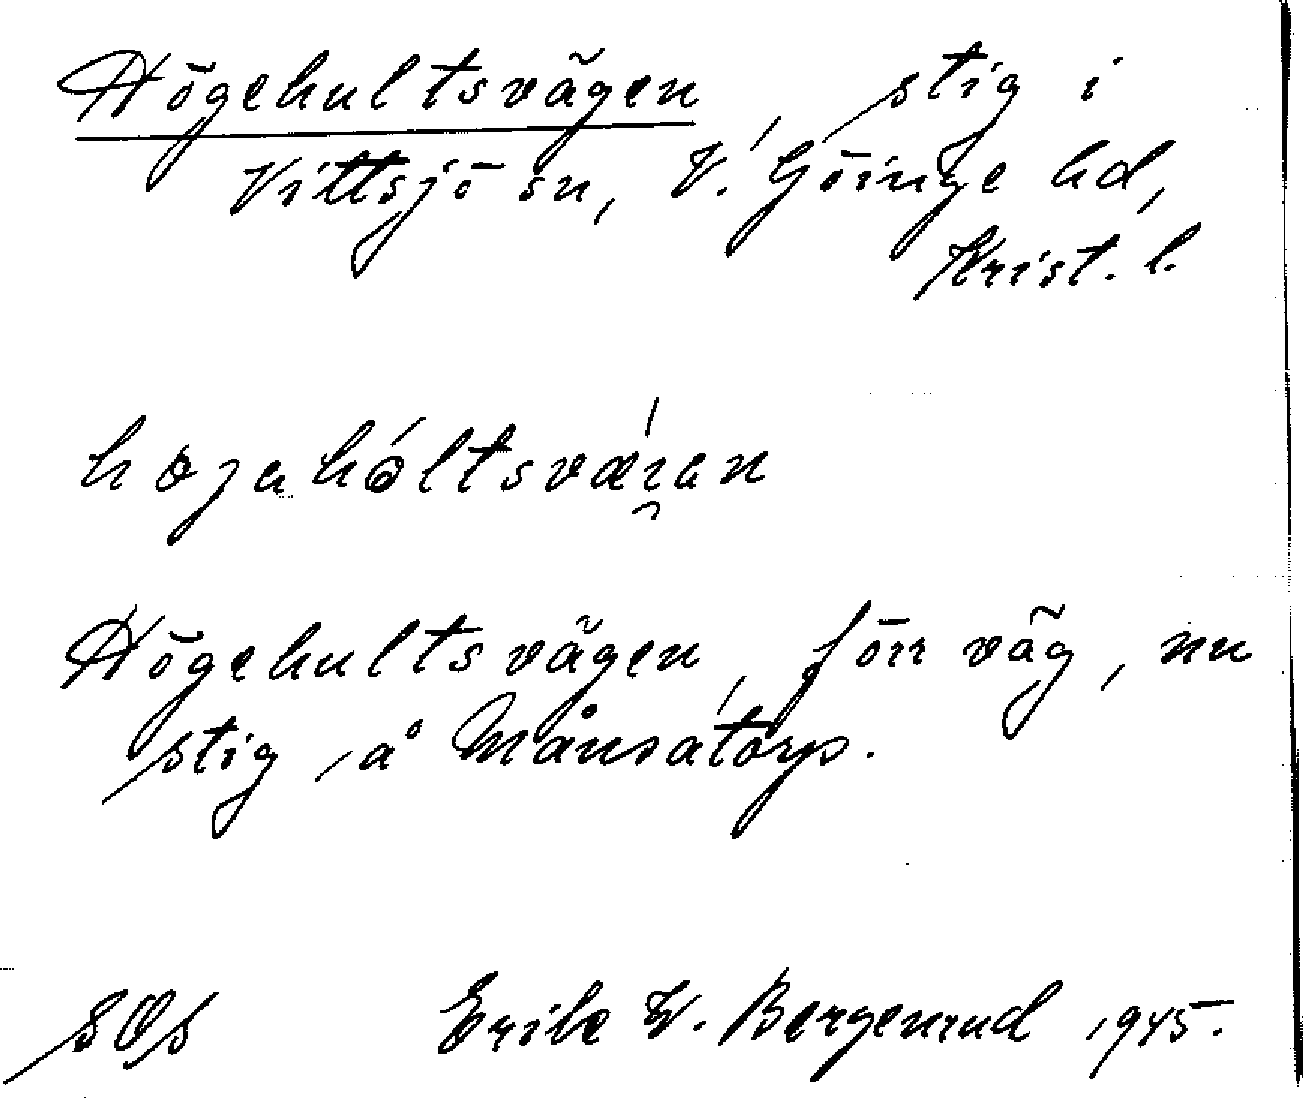 Högehultsvägen, stig i
Vittsjö sn, V. Göinge hd,
Krist. l.
Högehultsvägen, förr väg, nu
stig, å Månsatorp.
SOs Erik W. Bergenrud 1945.